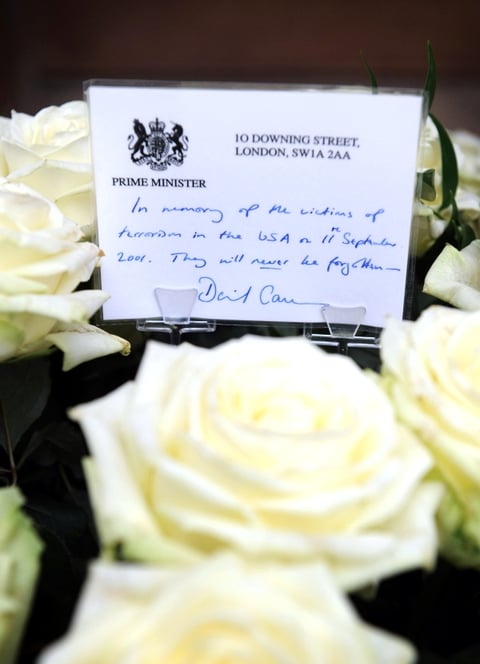 10 DOWNING STREET,
LONDON, SW1A 2AA
PRIME MINISTER
In memory of the victims of
terrorism in the USA on 11th September
2001. They will never be forgotten—
David Cameron